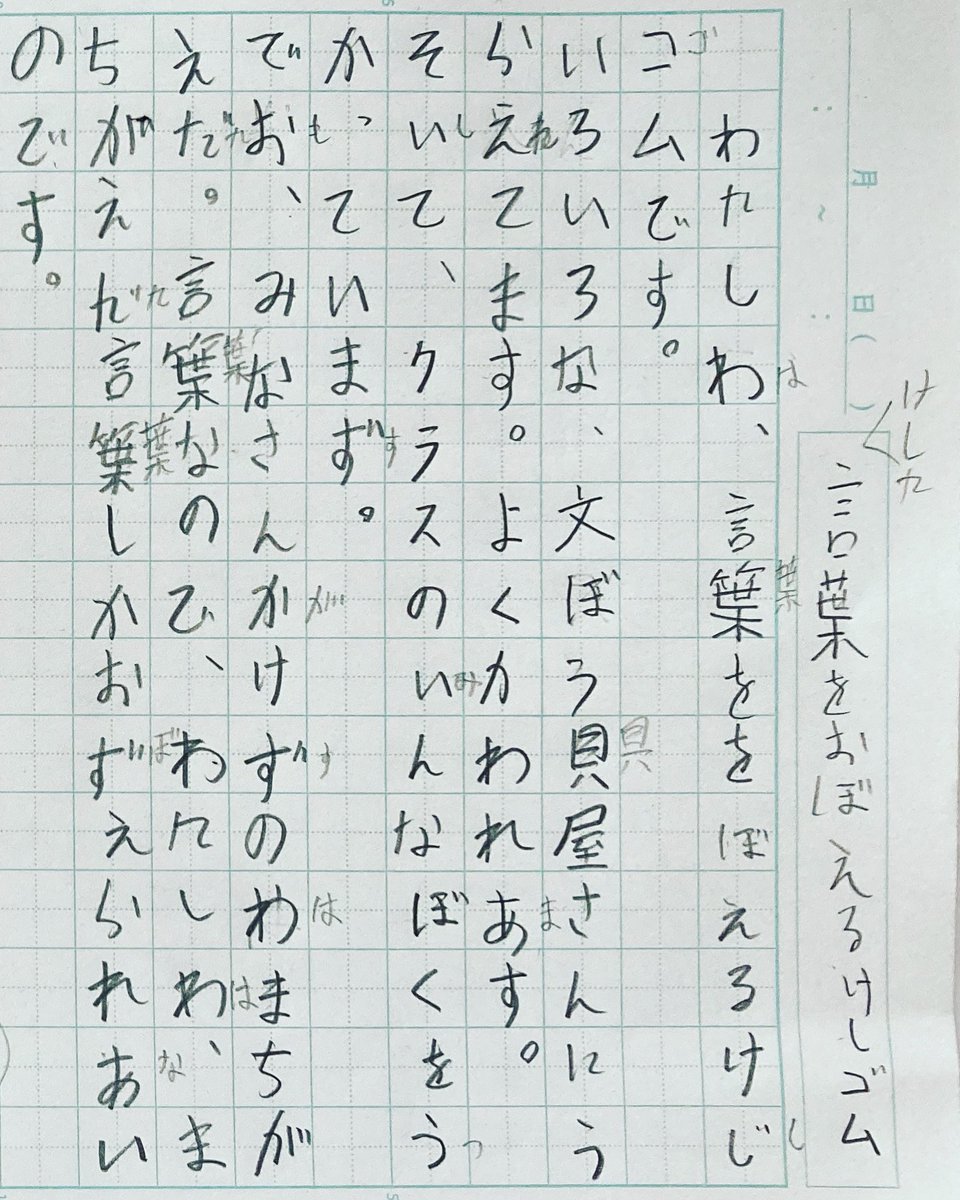 月　日(　)
けした
言葉をおぼえるけしゴム
は　葉　し
わたしわ、言葉ををぼえるけじ
ゴ
コムです。
具
いろいろな、文ぼう貝屋さんにう
れ　ま
らえてます。よくかわれあす。
し　み　つ
そいて、クラスのいんなぼくをう
す
かっていまず。
も　が　す　は
でお、みなさんかけずのわまちが
葉　は
えだ。言葉なので、わたしわ、ま
た　葉　ぼ　な
ちがえだ言葉しかおずえられあい
のです。